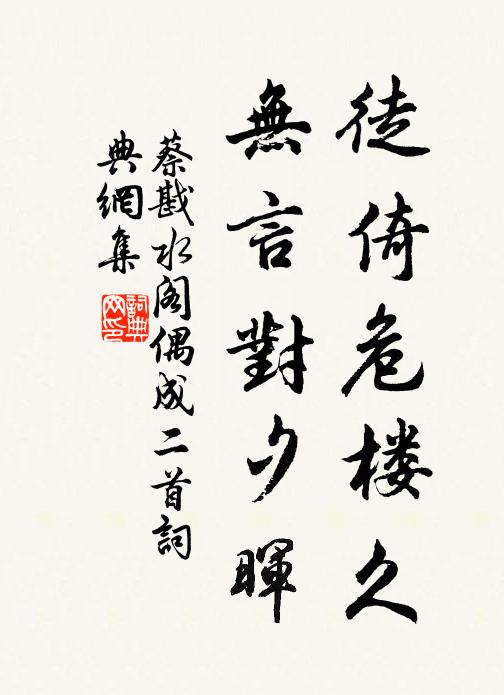 徒倚危楼久
無言對夕暉
蔡戡水阁偶成二首詞
典網集
詞典网印